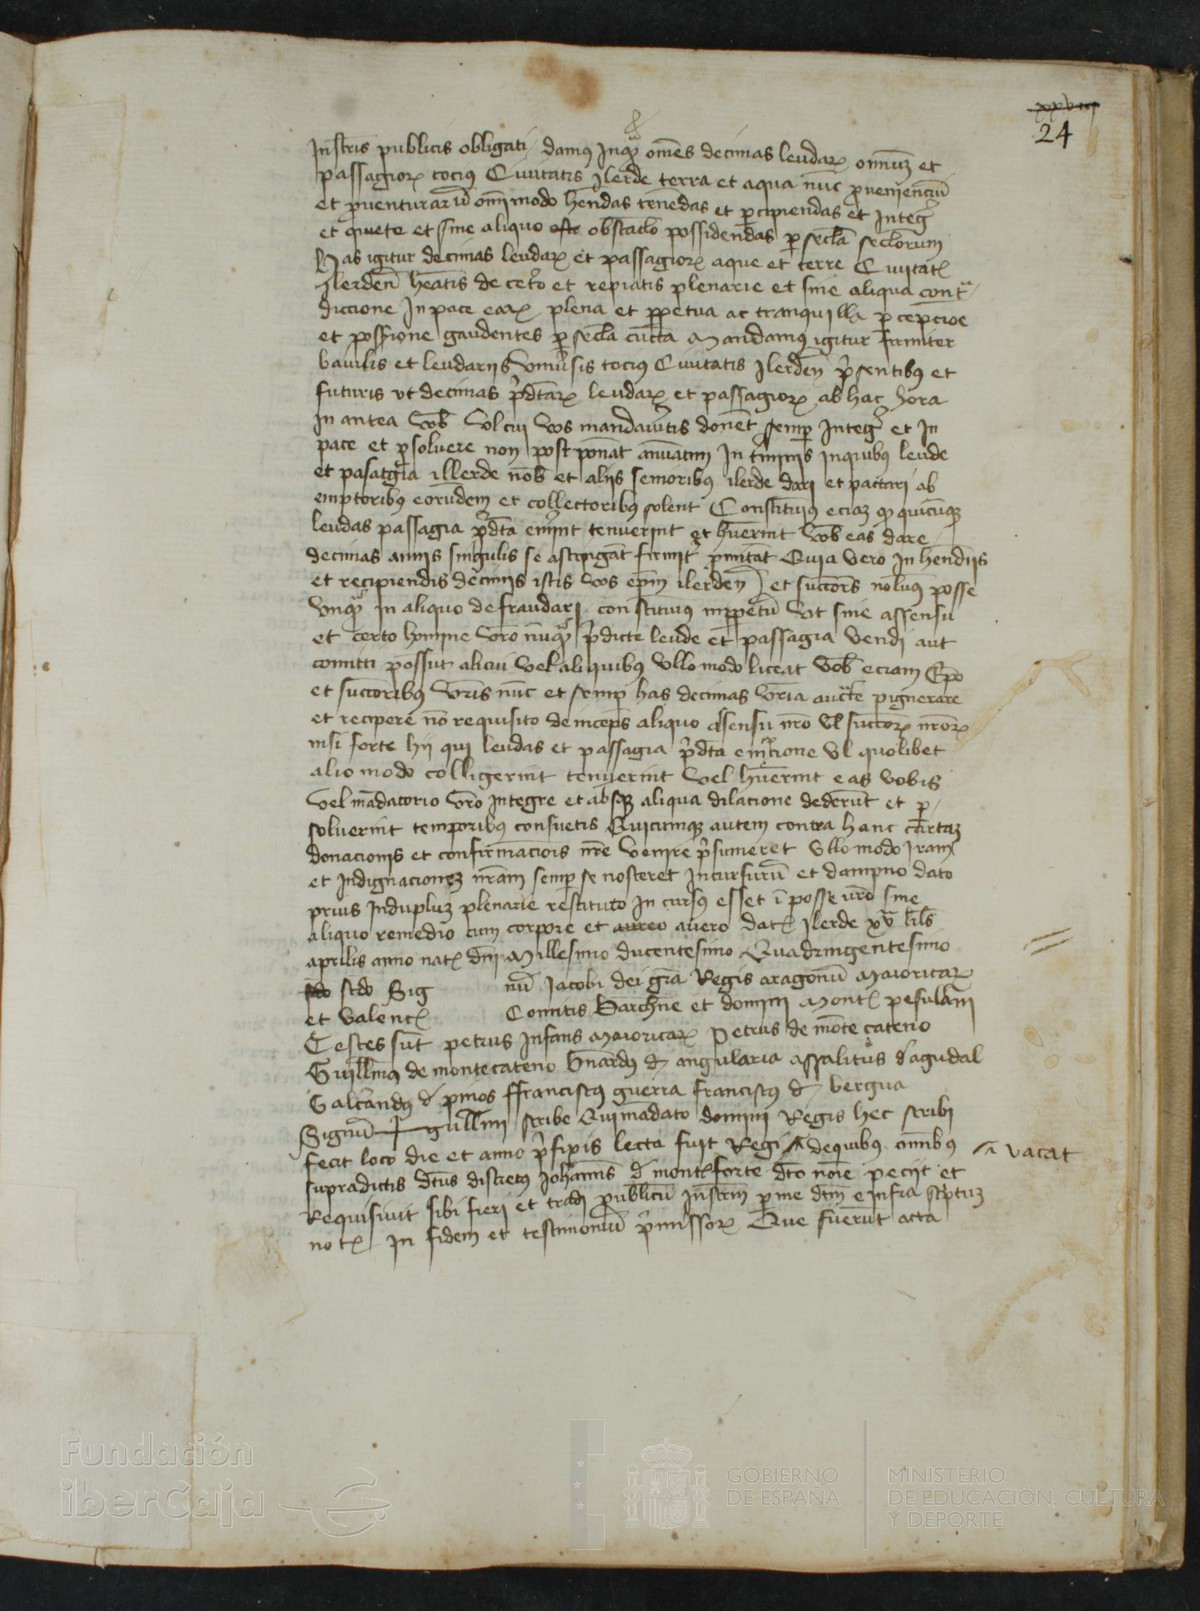 xxviiij
24
Instris publicis obligati damus Inqm omes decimas leudarz omnium et
passagiorz tocius Civitatis Ilerde terra et aqua nuc pvenienciu
et pventuraru omimodo hendas tenedas et pcipiendas et Integr
et quiete et sine aliquo obstaclo possidendas p secla seclorum
Has igitur decimas leudarz et passagiorz aque et terre Civitatz
Ilerden heatis de cetro et repiatis plenarie et sine aliqua contra
diccione In pace earz plena et ppetua ac tranquilla pcepcioe
et possione gaudentes p secla cuncta Mandamus igitur firmiter
baiulis et leudariis vniusis tocius Civitatis Ilerden psentibus et
futuris ut decimas pdtarz leudarz et passagiorz ab hac hora
In antea vob vl cui vos mandauitis donet semp Integr et In
pace et psoluere non post ponat annuatim In timinis inquibus leude
et pasatgia illerde nob et aliis senioribus ilerde dari et pactari ab
emptoribus eorudem et collectoribus solent Constituius eciaz qd quicuqz
leudas passagia pdta emint tenuerint et huerint vob eas dare
decimas annis singulis se astrigat firmit pmitat Quia vero In hendiis
et recipiendis decimis istis vos epm ilerden et succors nolius posse
vnqm in aliquo defraudari constituius inppetu vt sine assensu
et certo homine vro nuqm pdicte leude et passagia vendi aut
comitti possut alicui vel aliquibus vllo modo liceat vob eciam Epo
et succoribus vris nuc et semp has decimas vria aucte pignerare
et recipere no requisito deinceps aliquo asensu nro vl succorz nrorz
nisi forte hii qui leudas et passagia pdta emcione vl quolibet
alio modo colligerint tenuerint vel huerint eas vobis
vel madatorio vro Integre et absqz aliqua dilacione dederut et p
soluerint temporibus consuetis Quicumqz autem contra hanc cartaz
donacionis et confirmaciois nre venire psumeret vllo modo Iram
et Indignacionez nram semp se nosceret Incursuru et dampno dato
prius Induplum plenarie restituto In cursus esset i posse uro sine
aliquo remedio cum corpore et auero datz Ilerde xv kls
aprilis anno natz dni Millesimo ducentesimo Quadringentesimo
scdo Sig nu Jacobi dei gra Regis aragonu Maioricarz
et valencz Comitis Barchne et domini Montz pesulani
Testes sut petrus Infans Maioricarz Petrus de mote cateno
Guillmus de montecateno Bnardus de angularia Assalitus d'agudal
Galcandus d pinos ffranciscus guerra Franciscus de bergua
Signu gullmi scribe Qui madato domini Regis hec scribi
fecit loco die et anno pfixis lecta fuit Regi dequibus omibus vacat
supradictis dtus discretus Johannis d montzforte dto noie peciit et
Requisiuit sibi fieri et tradi publicu Instrm p me dtm e infra scptuz
notz In fidem et testimoniu pmissorz Que fuerut acta